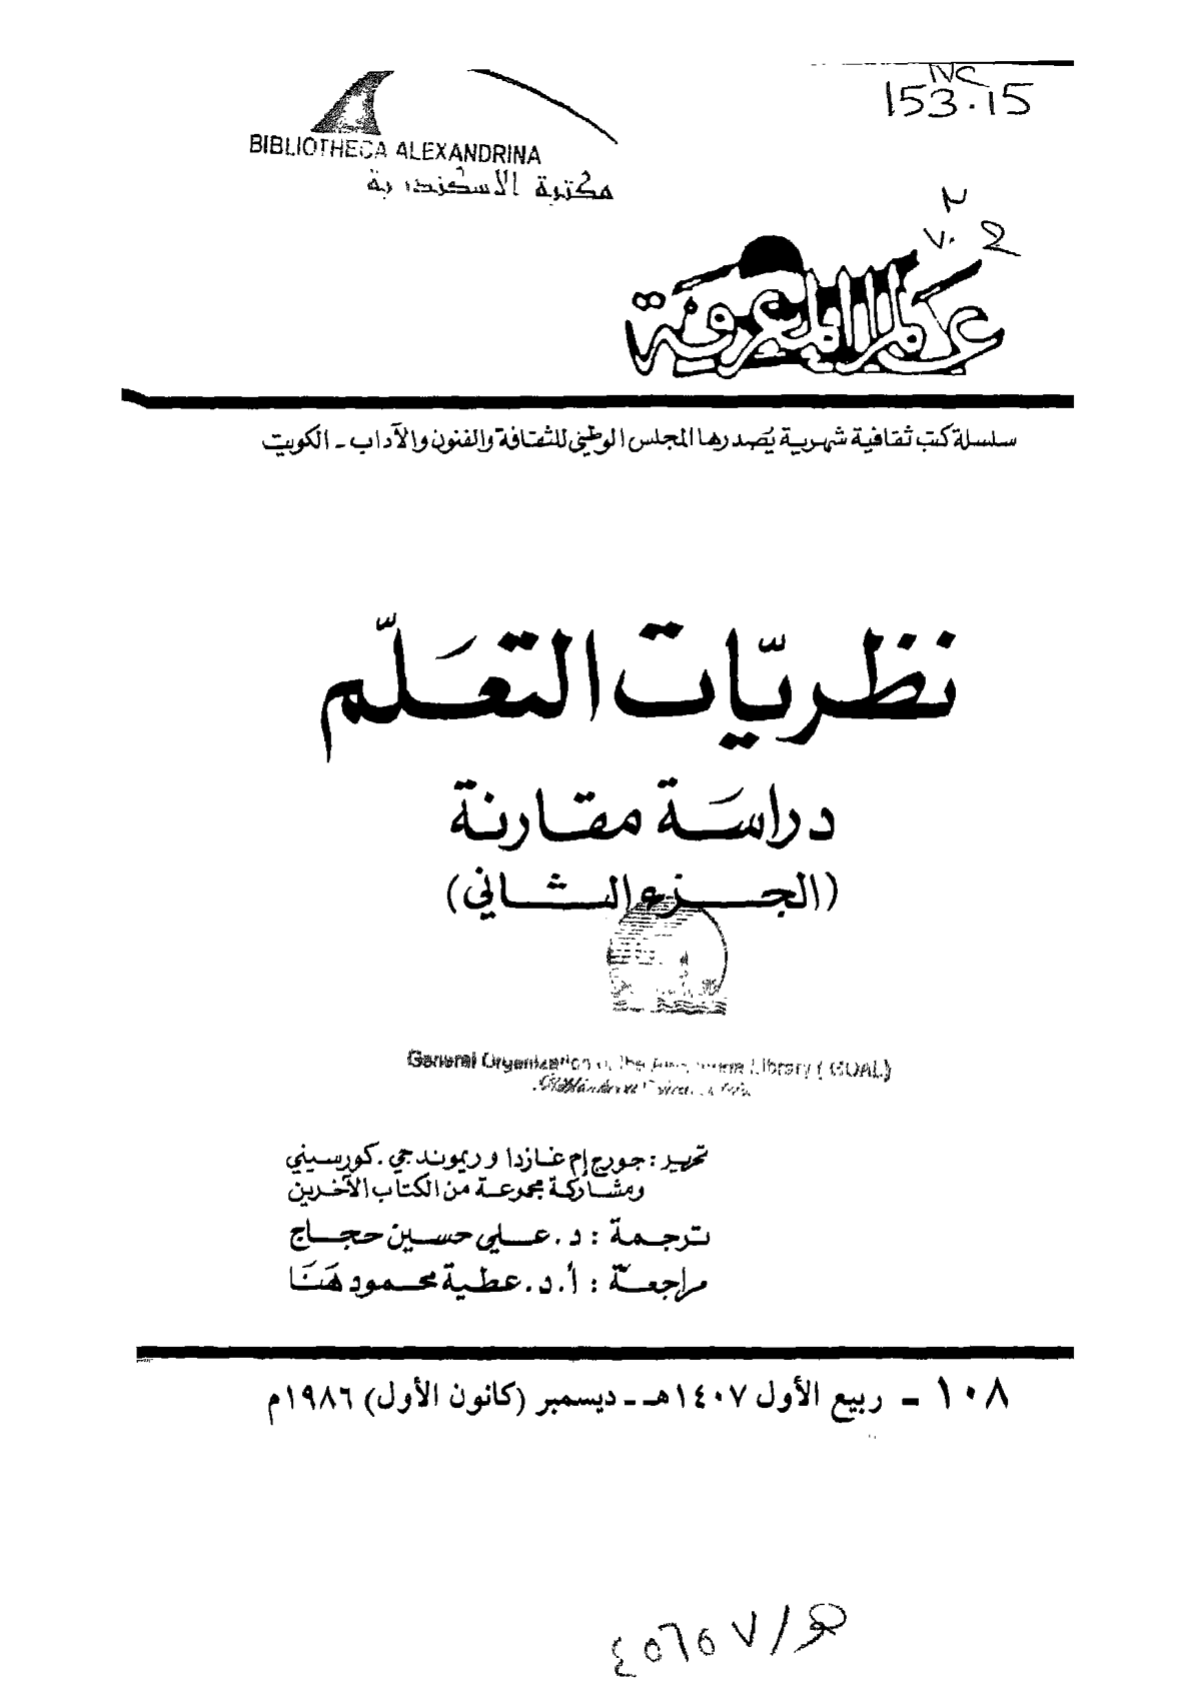 NC
153.15
BIBLIOTHECA ALEXANDRINA
مكتبة الاسكندرية
عالم المعرفة
سلسلة كتب ثقافية شهرية يُصدرها المجلس الوطني للثقافة والفنون والآداب - الكويت
نظريّات التعَلّم
دراسَة مقارنة
(الجزء الثاني)
General Organization of the Library (GOAL)
تحرير : جورج إم غازدا وريموند جي . كورسيني
ومشاركة مجموعة من الكتاب الآخرين
ترجمة : د . علي حسين حجاج
مراجعة : أ . د . عطية محمود هَنَا
١٠٨ - ربيع الأول ١٤٠٧هـ - ديسمبر (كانون الأول) ١٩٨٦م